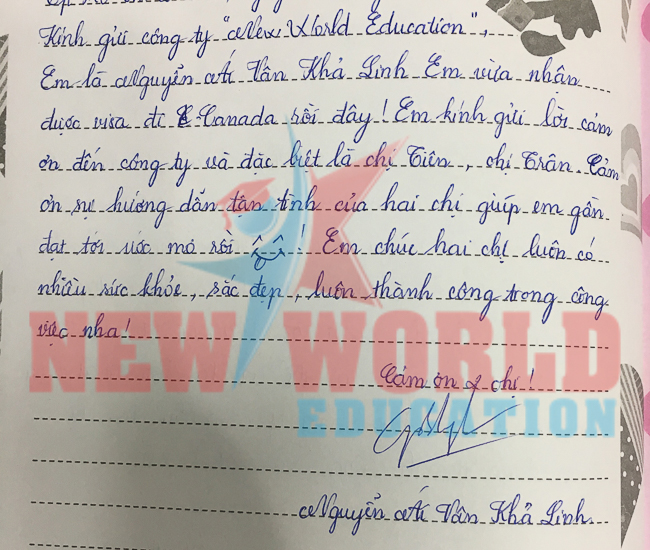 Kính gửi công ty "New World Education",
Em là Nguyễn Ái Vân Khả Linh Em vừa nhận
được visa đi Canada rồi đây! Em kính gửi lời cảm
ơn đến công ty và đặc biệt là chị Tiên, chị Trân. Cảm
ơn sự hướng dẫn tận tình của hai chị giúp em gần
đạt tới ước mơ rồi ^_^! Em chúc hai chị luôn có
nhiều sức khỏe, sắc đẹp, luôn thành công trong công
việc nha!
NEW WORLD
Cảm ơn 2 chị!
EDUCATION
Nguyễn Ái Vân Khả Linh